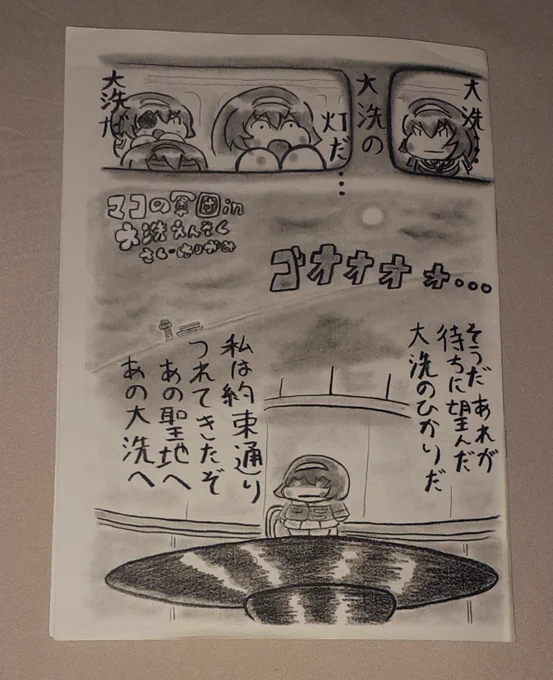 大洗…
大洗の
灯だ…
大洗だ
マコの軍団in
大洗えんそく
ゴオオオォ…
そうだ あれが
待ちに望んだ
大洗のひかりだ
私は約束通り
つれてきたぞ
あの聖地へ
あの大洗へ